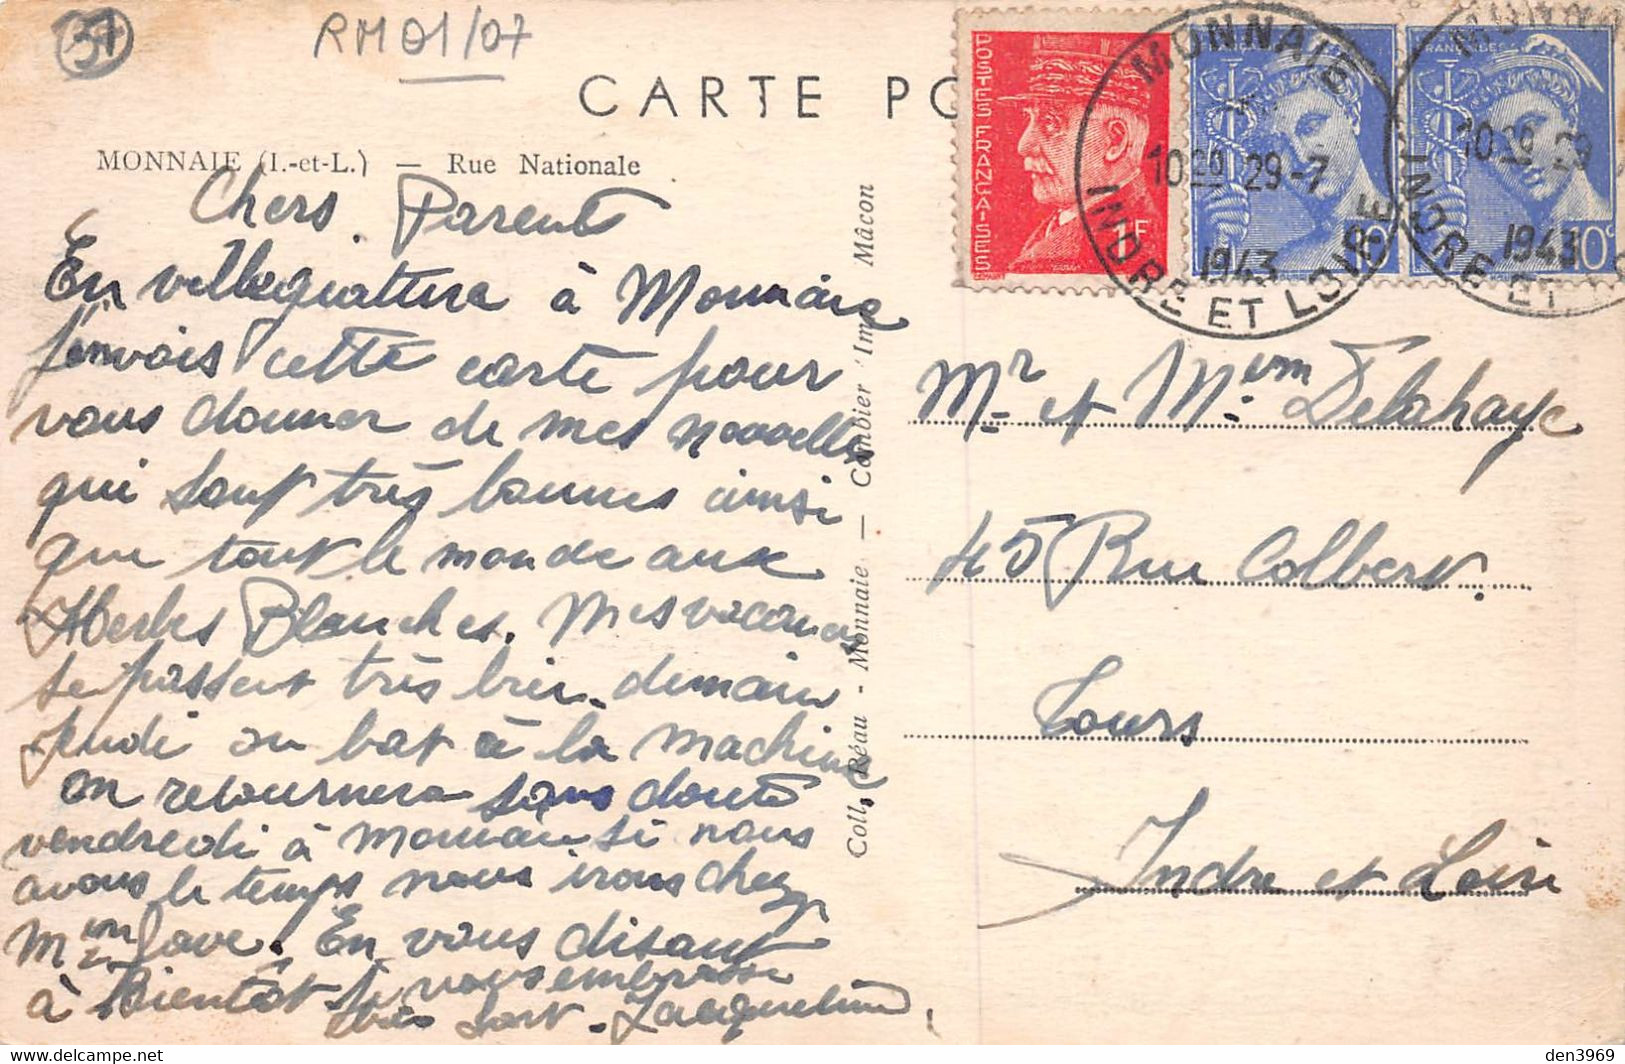 37
RM 01/07
CARTE PO
MONNAIE (I.-et-L.) — Rue Nationale
Chers Parents
En villegiature à Monnaie
j'envois cette carte pour
vous donner de mes nouvelles
qui sont très bonnes ainsi
que tout le monde aux
Herbes Blanches. Mes vacances
se passent très bien. demain
jeudi on bat à la machine
on retournera sans doute
vendredi à Monnaie si nous
avons le temps nous irons chez
Mem Jave. En vous disant
à Bientôt je vous embrasse
très fort. Jacqueline
Coll. Réau - Monnaie — Combier Imp. Mâcon
POSTES FRANÇAISES
1F
10c
10c
MONNAIE
10 20 29-7
1943
INDRE ET LOIRE
10 20 29
1943
INDRE ET
Mr et Mem Delahaye
45 Rue Colbert.
Tours
Indre et Loire
den3969